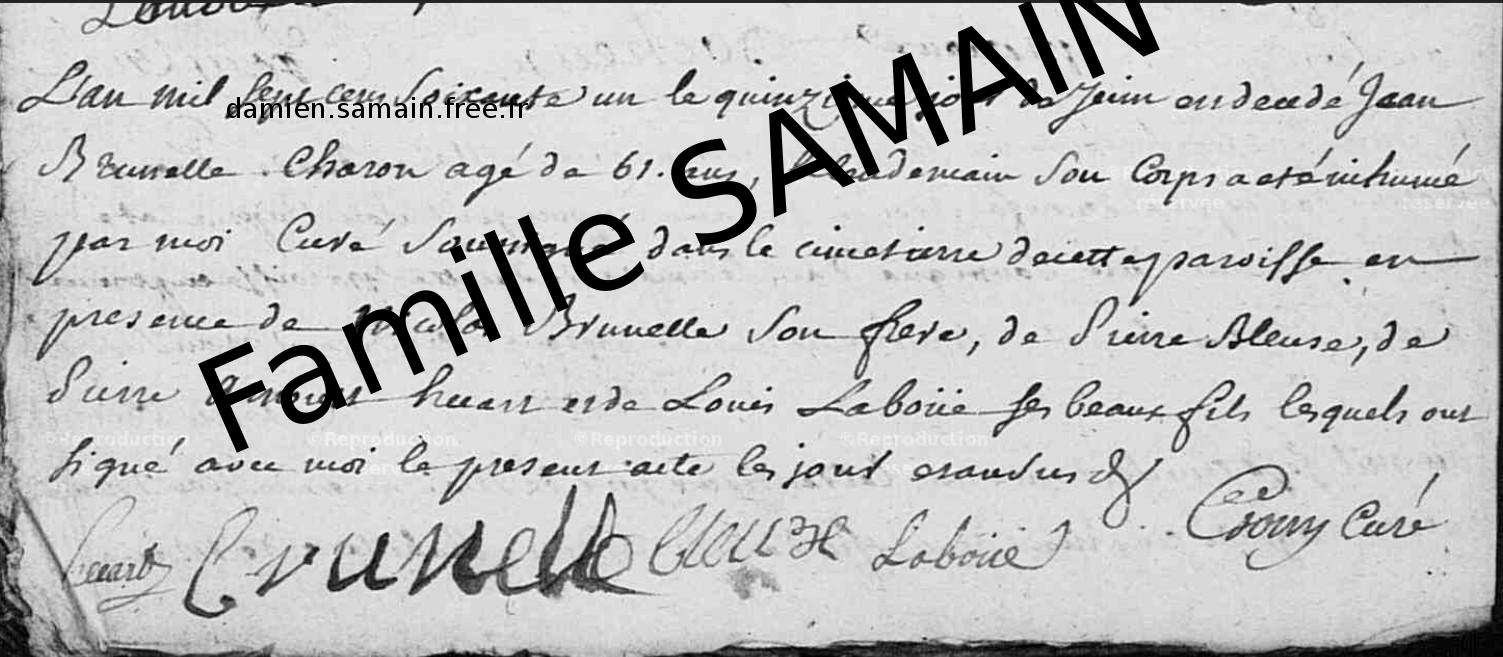 L'an mil sept cens soixante un le quinzieme jour de Juin est decedé Jean
Brunelle Charon agé de 61. ans, le lendemain son corps a eté inhumé
par moi Curé soussigné dans le cimetierre de cette paroisse en
presence de Nicolas Brunelle son frere, de Pierre Bleuse, de
Pierre huart et de Louis Laboiie ses beaux fils lesquels ont
signé avec moi le present acte les jour et an susd
huart Brunelle bleuze Laboiie Curé
damien.samain.free.fr
Famille SAMAIN
©Reproduction ©Reproduction ©Reproduction ©Reproduction